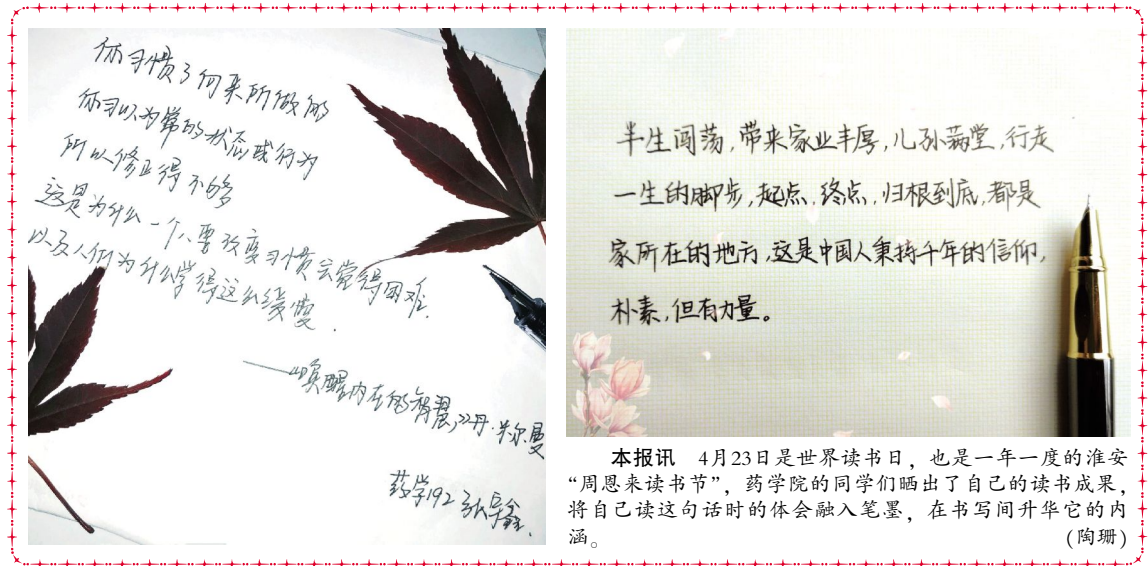 你习惯了向来所做的
你习以为常的状态或行为
所以修正得不多
这是为什么一个人要改变习惯会觉得困难.
以及人们为什么学得这么缓慢.
——《唤醒内在的智慧》丹·米尔曼
药学192 张
半生闯荡,带来家业丰厚,儿孙满堂,行走
一生的脚步,起点,终点,归根到底,都是
家所在的地方,这是中国人秉持千年的信仰,
朴素,但有力量。
本报讯 4月23日是世界读书日，也是一年一度的淮安
“周恩来读书节”，药学院的同学们晒出了自己的读书成果，
将自己读这句话时的体会融入笔墨，在书写间升华它的内
涵。 (陶珊)